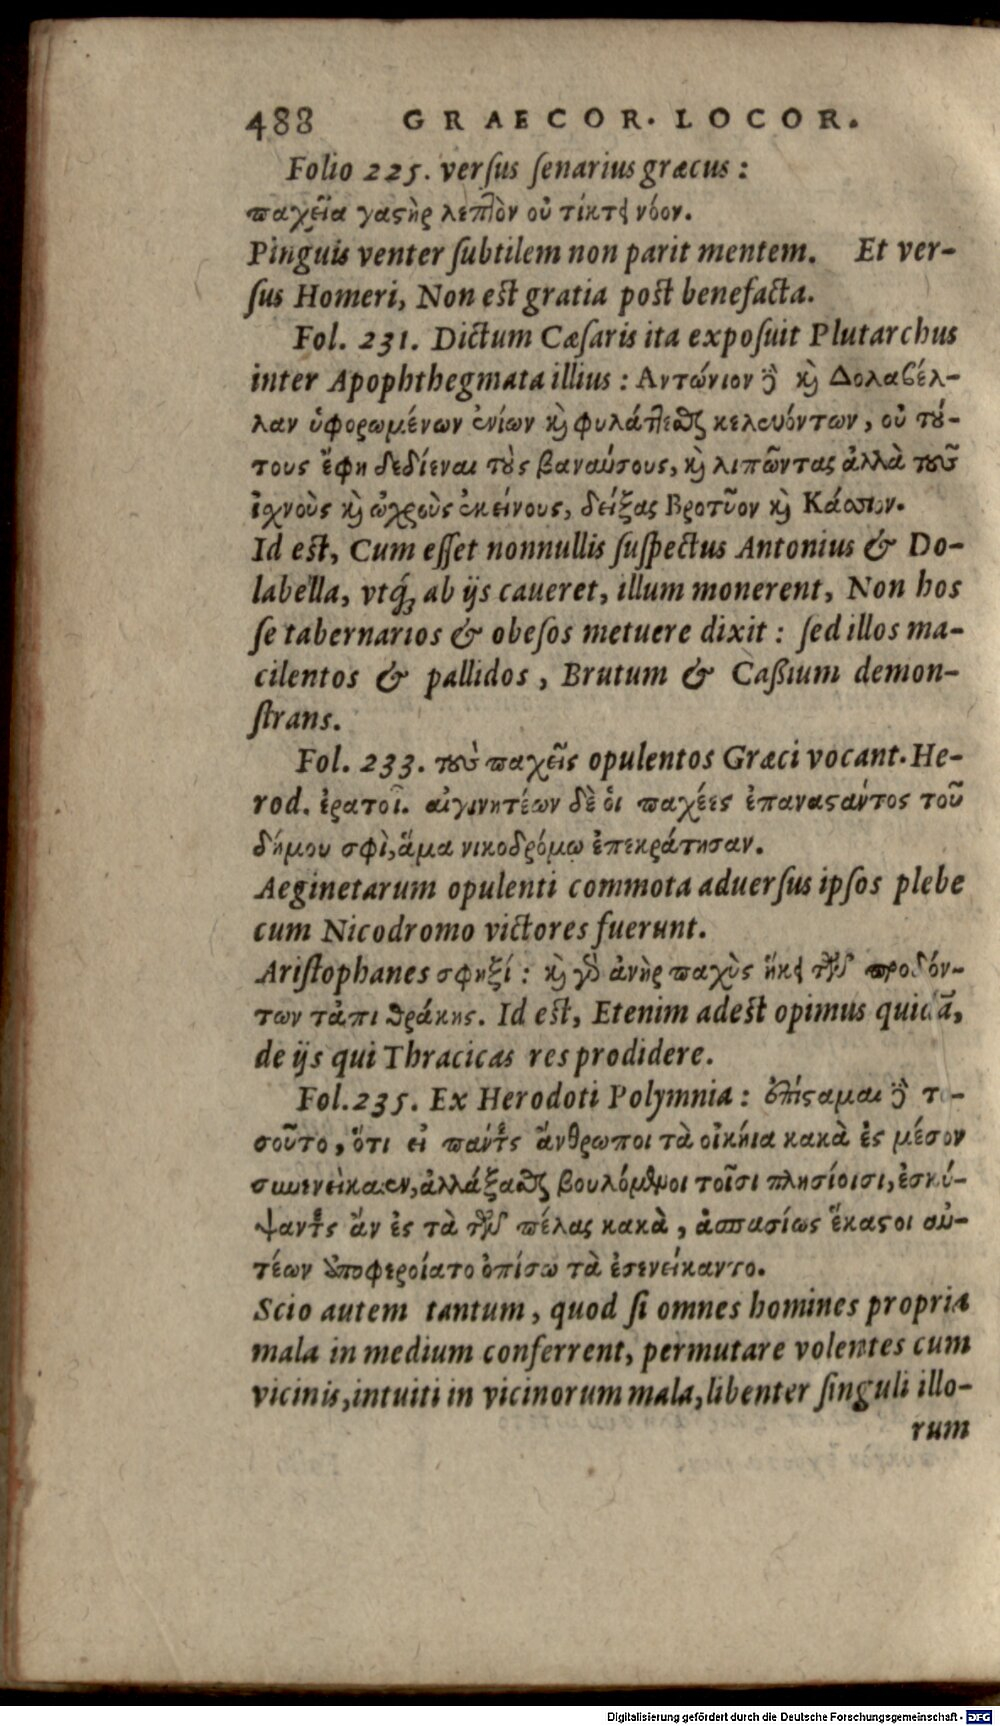 488 GRAECOR. LOCOR.
Folio 225. versus senarius græcus:
παχεῖα γαστὴρ λεπτὸν οὐ τίκτει νόον.
Pinguis venter subtilem non parit mentem. Et ver-
sus Homeri, Non est gratia post benefacta.
Fol. 231. Dictum Cæsaris ita exposuit Plutarchus
inter Apophthegmata illius: Αντώνιον δὲ καὶ Δολαβέλ-
λαν ὑφορωμένων ἐνίων καὶ φυλάττεσθαι κελευόντων, οὐ τού-
τους ἔφη δεδίεναι τοὺς βαναύσους, καὶ λιπῶντας ἀλλὰ τοὺς
ἰχνοὺς καὶ ὠχροὺς ἐκείνους, δείξας Βροῦτον καὶ Κάσσιον.
Id est, Cum esset nonnullis suspectus Antonius & Do-
labella, vtq́; ab ijs caueret, illum monerent, Non hos
se tabernarios & obesos metuere dixit: sed illos ma-
cilentos & pallidos, Brutum & Caßium demon-
strans.
Fol. 233. τοὺς παχεῖς opulentos Græci vocant. He-
rod. ἐρατοῖ. αἰγινητέων δὲ οἱ παχέες ἐπαναστάντος τοῦ
δήμου σφὶ, ἅμα νικοδρόμῳ ἐπεκράτησαν.
Aeginetarum opulenti commota aduersus ipsos plebe
cum Nicodromo victores fuerunt.
Aristophanes σφηξί: καὶ γὰρ ἀνὴρ παχὺς ἥκει τῶν προδόν-
των τἀπι θράκης. Id est, Etenim adest opimus quidā,
de ijs qui Thracicas res prodidere.
Fol. 235. Ex Herodoti Polymnia: ἐπίσταμαι δὲ το-
σοῦτο, ὅτι εἰ πάντες ἄνθρωποι τὰ οἰκήια κακὰ ἐς μέσον
συνενείκαιεν, ἀλλάξασθαι βουλόμενοι τοῖσι πλησίοισι, ἐσκύ-
ψαντες ἂν ἐς τὰ τῶν πέλας κακὰ, ἀσπασίως ἕκαστοι αὐ-
τέων ὑποφεροίατο ὀπίσω τὰ ἐσενείκαντο.
Scio autem tantum, quod si omnes homines propria
mala in medium conferrent, permutare volentes cum
vicinis, intuiti in vicinorum mala, libenter singuli illo-
rum
Digitalisierung gefördert durch die Deutsche Forschungsgemeinschaft - DFG